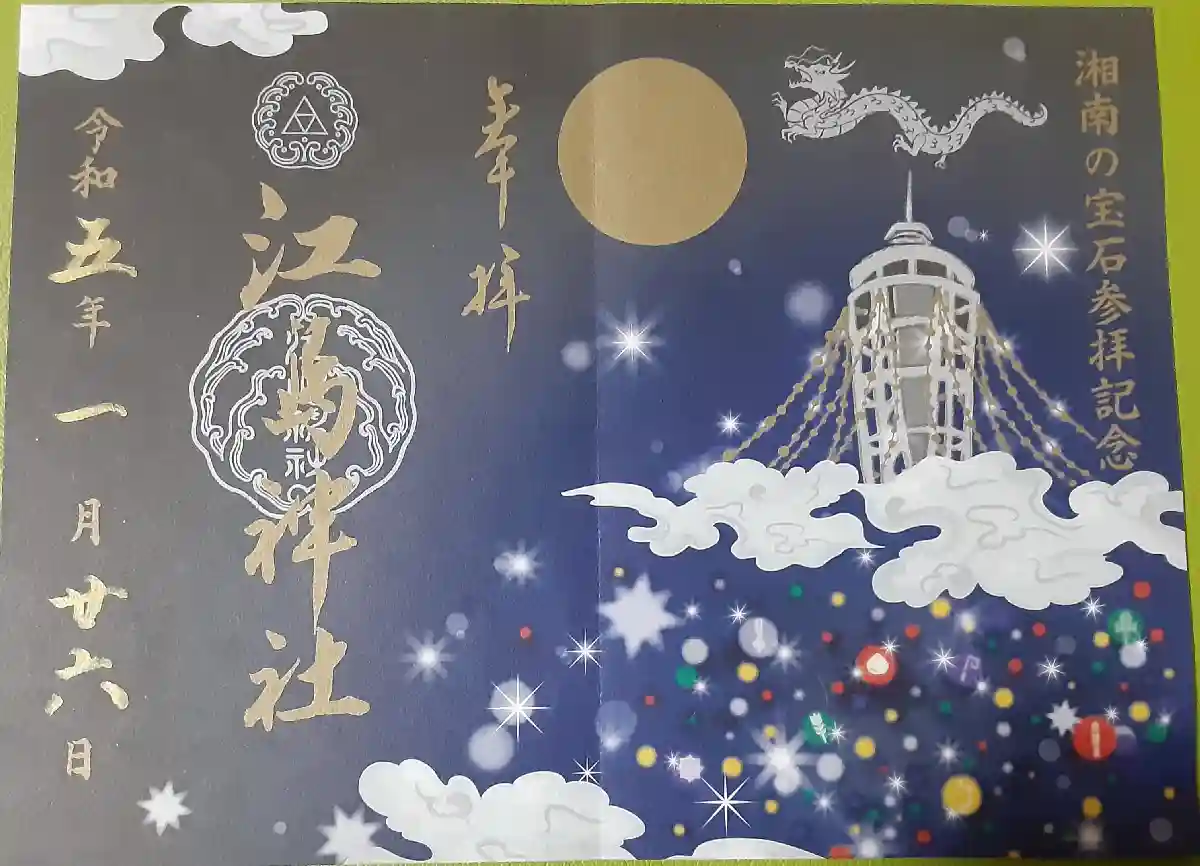 湘南の宝石参拝記念
奉拝
江島神社
令和五年一月廿六日